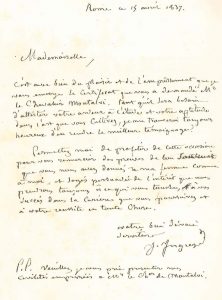 Rome ce 15 avril 1837.
Mademoiselle,
C'est avec bien du plaisir et de l'empressement que je
vous envoye le Certificat que vous a demandé Mr
le Chevalier Montalvi. Tant qu'il sera besoin
d'attester votre ardeur à l'étude et votre aptitude
dans l'art que vous Cultivez, je me trouverai toujours
heureux d'en rendre le meilleur témoignage.
Permettez moi de profiter de cette occasion
pour vous remercier des preuves de bon
que vous nous avez données, Je me trouve
à moi et soyez persuadée de l'intérêt que
prendrai toujours à ce qui vous touche, à vos
succès dans la Carrière que vous parcourez et
à votre réussite en toute Chose.
votre bien dévoué
serviteur
J. Ingres
P.S. Veuillez, je vous prie présenter mes
Civilités empressées à Mr le Chr de Montalvi.